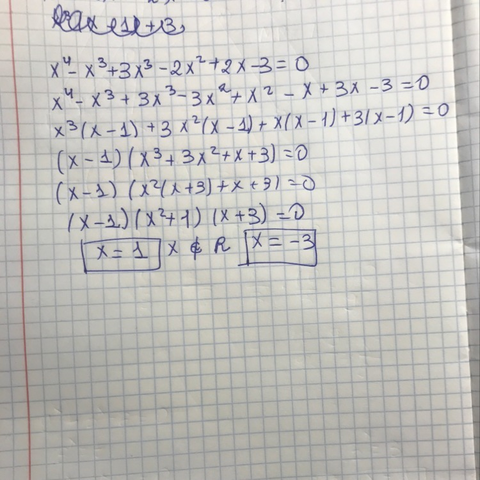 x⁴ - x³ + 3x³ - 2x² + 2x - 3 = 0
x⁴ - x³ + 3x³ - 3x² + x² - x + 3x - 3 = 0
x³(x - 1) + 3x²(x - 1) + x(x - 1) + 3(x - 1) = 0
(x - 1)(x³ + 3x² + x + 3) = 0
(x - 1)(x²(x + 3) + x + 3) = 0
(x - 1)(x² + 1)(x + 3) = 0
x = 1 x ∉ R x = -3